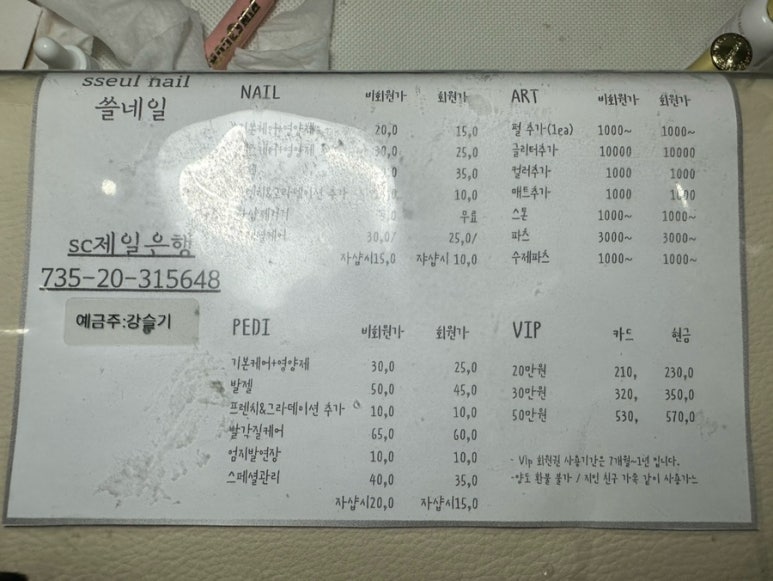 sseul nail
쓸네일
NAIL 비회원가 회원가
기본케어+영양제 20,0 15,0
케어+영양제 30,0 25,0
35,0
프렌치&그라데이션 추가 10,0
무료
30,0/ 25,0/
자샵시15,0 쟈샵시 10,0
ART 비회원가 회원가
펄 추가(1ea) 1000~ 1000~
글리터추가 10000 10000
컬러추가 1000 1000
매트추가 1000 1000
스톤 1000~ 1000~
파츠 3000~ 3000~
수제파츠 1000~ 1000~
sc제일은행
735-20-315648
예금주:강슬기
PEDI 비회원가 회원가
기본케어+영양제 30,0 25,0
발젤 50,0 45,0
프렌치&그라데이션 추가 10,0 10,0
발각질케어 65,0 60,0
엄지발연장 10,0 10,0
스페셜관리 40,0 35,0
자샵시20,0 자샵시15,0
VIP 카드 현금
20만원 210, 230,0
30만원 320, 350,0
50만원 530, 570,0
- VIp 회원권 사용기간은 7개월~1년 입니다.
-양도 환불 불가 / 지인 친구 가족 같이 사용가스